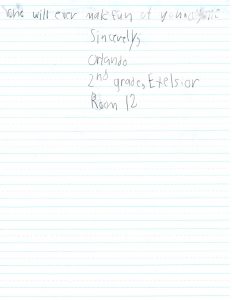 who will ever make fun of you
Sincerely,
Orlando
2nd grade, Exelsior
Room 12